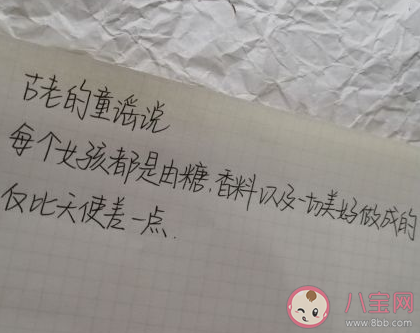 古老的童谣说
每个女孩都是由糖、香料以及一切美好做成的
仅比天使差一点.
八宝网
www.8bb.com